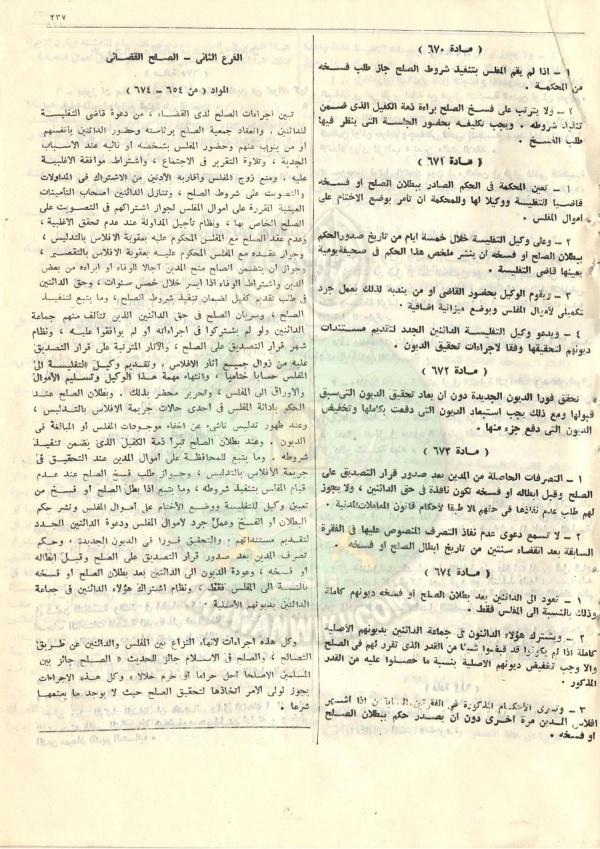 ٢٣٧
( مــادة ٦٧٠ )
١ – اذا لم يقم المفلس بتنفيذ شروط الصلح جاز طلب فسخه
من المحكمة .
٢ – ولا يترتب على فسخ الصلح براءة ذمة الكفيل الذى ضمن
تنفيذ شروطه . ويجب تكليفه بحضور الجلسة التى ينظر فيها
طلب الفسخ .
( مــادة ٦٧١ )
١ – تعين المحكمة في الحكم الصادر ببطلان الصلح او فسخه
قاضيا للتفليسة ووكيلا لها وللمحكمة ان تأمر بوضع الاختام على
اموال المفلس .
٢ – وعلى وكيل التفليسة خلال خمسة ايام من تاريخ صدور الحكم
ببطلان الصلح او فسخه ان ينشر ملخص هذا الحكم في صحيفة يومية
يعينها قاضى التفليسة .
٣ – ويقوم الوكيل بحضور القاضى او من يندبه لذلك بعمل جرد
تكميلى لأموال المفلس وبوضع ميزانية اضافية .
٤ – ويدعو وكيل التفليسة الدائنين الجدد لتقديم مستندات
ديونهم لتحقيقها وفقا لاجراءات تحقيق الديون .
( مــادة ٦٧٢ )
تحقق فورا الديون الجديدة دون ان يعاد تحقيق الديون التى سبق
قبولها ومع ذلك يجب استبعاد الديون التى دفعت بكاملها وتخفيض
الديون التى دفع جزء منها .
( مــادة ٦٧٣ )
١ – التصرفات الحاصلة من المدين بعد صدور قرار التصديق على
الصلح وقبل ابطاله او فسخه تكون نافذة في حق الدائنين ، ولا يجوز
لهم طلب عدم نفاذها في حقهم الا طبقا لأحكام قانون المعاملات المدنية .
٢ – لا تسمع دعوى عدم نفاذ التصرف المنصوص عليها في الفقرة
السابقة بعد انقضاء سنتين من تاريخ ابطال الصلح او فسخه
( مــادة ٦٧٤ )
١ – تعود الى الدائنين بعد بطلان الصلح او فسخه ديونهم كاملة
وذلك بالنسبة الى المفلس فقط .
٢ – ويشترك هؤلاء الدائنون في جماعة الدائنين بديونهم الأصلية
كاملة اذا لم يكونوا قد قبضوا شيئا من القدر الذى تقرر لهم فى الصلح
والا وجب تخفيض ديونهم الاصلية بنسبة ما حصلوا عليه من القدر
المذكور .
٣ – وتسرى الأحكام المذكورة في الفقرتين السابقتين اذا اشهر
افلاس المدين مرة اخرى دون ان يصدر حكم ببطلان الصلح
او فسخه .
الفرع الثانى – الصلح القضائى
المواد ( من ٦٥٤ – ٦٧٤ )
تبين اجراءات الصلح لدى القضاء ، من دعوة قاضى التفليسة
للدائنين . وانعقاد جمعية الصلح برئاسته وحضور الدائنين بانفسهم
او من ينوب عنهم وحضور المفلس بشخصه او نائبه عند الاسباب
الجدية ، وتلاوة التقرير فى الاجتماع ، واشتراط موافقة الاغلبية
عليه . ومنع زوج المفلس واقاربه الأدنين من الاشتراك فى المداولات
والتصويت على شروط الصلح ، وتنازل الدائنين اصحاب التأمينات
العينية المقررة على اموال المفلس لجواز اشتراكهم فى التصويت على
الصلح الخاص بها ، ونظام تأجيل المداولة عند عدم تحقق الاغلبية ،
وعدم عقد الصلح مع المفلس المحكوم عليه بعقوبة الافلاس بالتدليس ،
وجواز عقده مع المفلس المحكوم عليه بعقوبة الافلاس بالتقصير ،
وجواز ان يتضمن الصلح منح المدين آجالا للوفاء او ابراءه من بعض
الدين واشتراط الوفاء اذا ايسر خلال خمس سنوات ، وحق الدائنين
فى طلب تقديم كفيل لضمان تنفيذ شروط الصلح ، وما يتبع لتنفيذ
الصلح ، وسريان الصلح فى حق الدائنين الذين تتألف منهم جماعة
الدائنين ولو لم يشتركوا فى اجراءاته او لم يوافقوا عليه ، ونظام
شهر قرار التصديق على الصلح ، والآثار المترتبة على قرار التصديق
عليه من زوال جميع آثار الافلاس ، وتقديم وكيل التفليسة الى
المفلس حسابا ختاميا ، وانتهاء مهمة هذا الوكيل وتسليم الأموال
والاوراق الى المفلس ، وتحرير محضر بذلك . وبطلان الصلح عند
الحكم بادانة المفلس فى احدى حالات جريمة الافلاس بالتدليس ،
وعند ظهور تدليس ناشىء عن اخفاء موجودات المفلس او المبالغة فى
الديون . وعند بطلان الصلح تبرأ ذمة الكفيل الذى يضمن تنفيذ
شروطه . وما يتبع للمحافظة على اموال المدين عند التحقيق فى
جريمة الافلاس بالتدليس ، وجواز طلب فسخ الصلح عند عدم
قيام المفلس بتنفيذ شروطه ، وما يتبع اذا بطل الصلح او فسخ من
تعيين وكيل للتفليسة ووضع الأختام على اموال المفلس ونشر حكم
البطلان او الفسخ وعمل جرد لاموال المفلس ودعوة الدائنين الجدد
لتقديم مستنداتهم ، والتحقيق فورا فى الديون الجديدة ، وحكم
تصرف المدين بعد صدور قرار التصديق على الصلح وقبل ابطاله
او فسخه ، وعودة الديون الى الدائنين بعد بطلان الصلح او فسخه
بالنسبة الى المفلس فقط ، ونظام اشتراك هؤلاء الدائنين فى جماعة
الدائنين بديونهم الأصلية .
وكل هذه اجراءات لانهاء النزاع بين المفلس والدائنين عن طريق
التصالح ، والصلح فى الاسلام جائز للحديث « الصلح جائز بين
المسلمين الاصلحا احل حراما او حرم حلالا » وكل هذه الاجراءات
يجوز لولى الامر اتخاذها لتحقيق الصلح حيث لا يوجد ما يمنعها
شرعا .